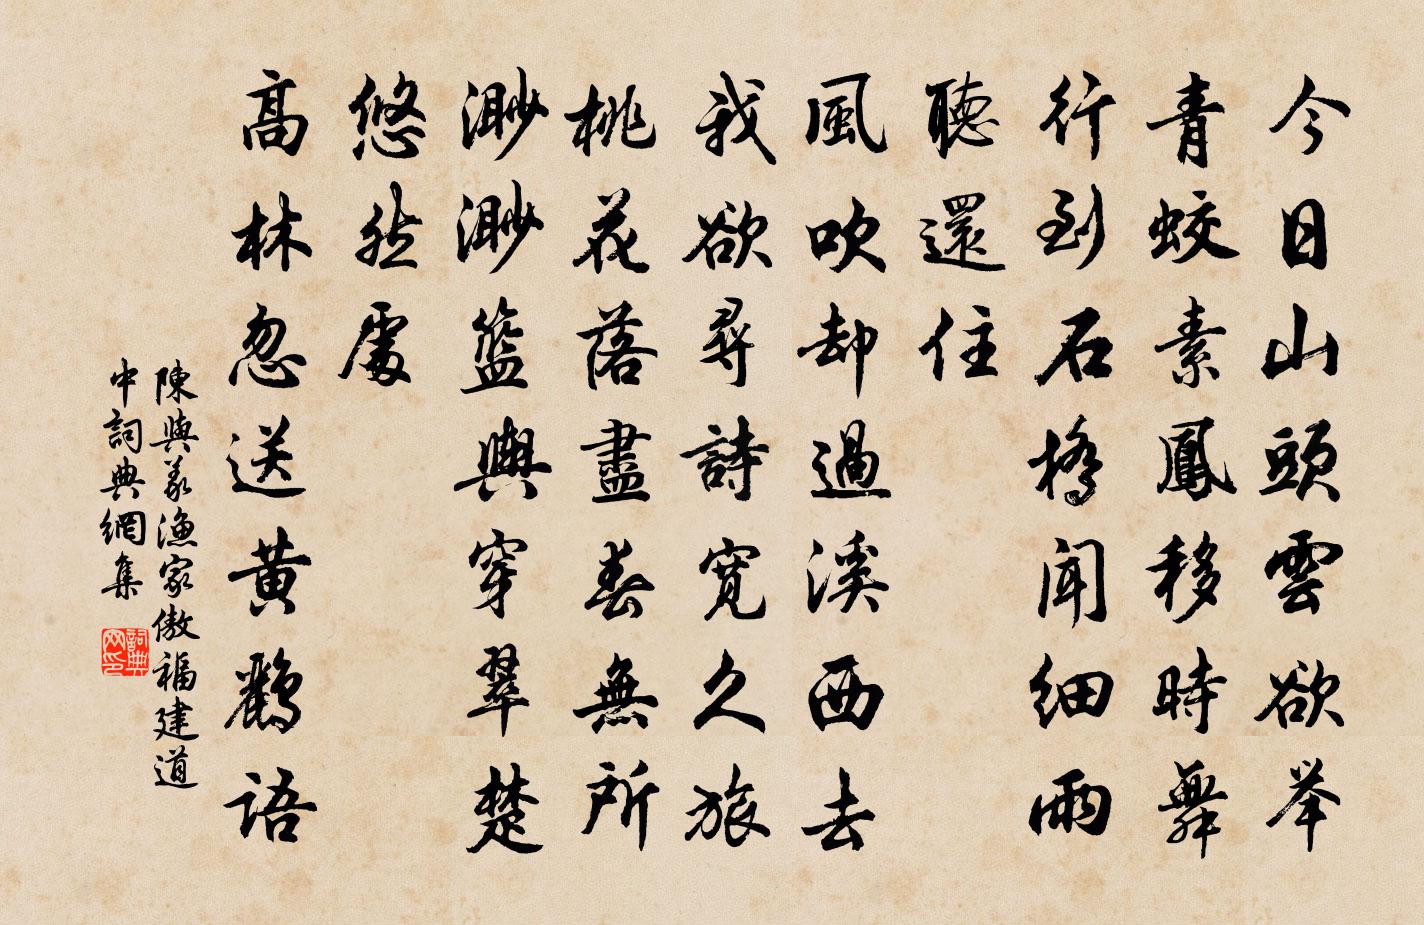 今日山頭雲欲举
青蛟素鳳移時舞
行到石橋聞细雨
聽還住
風吹却過溪西去
我欲尋詩寬久旅
桃花落盡春無所
渺渺籃輿穿翠楚
悠然處
高林忽送黄鸝語
陳與義漁家傲福建道
中詞典網集
詞典网印